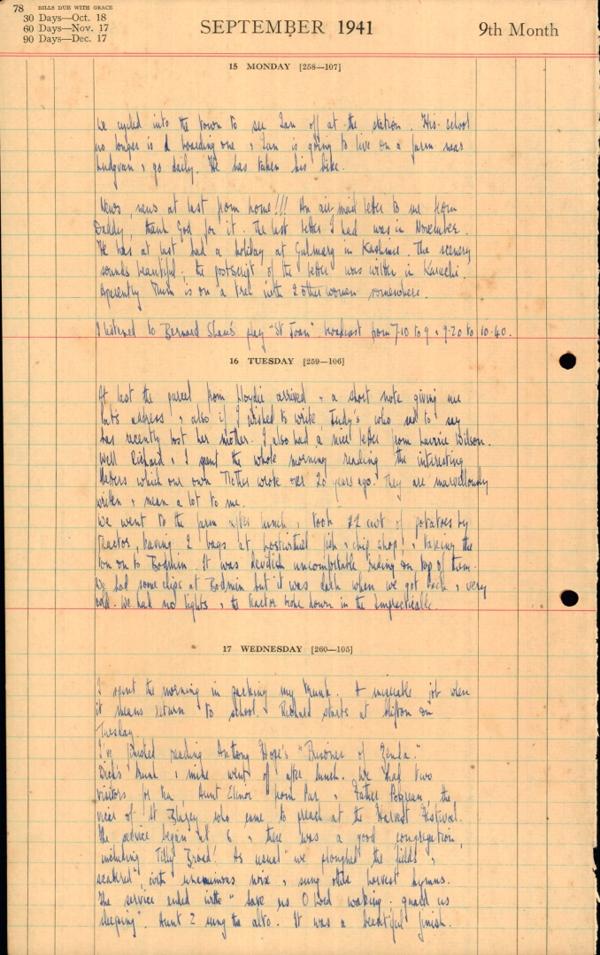 78 BILLS DUE WITH GRACE
30 Days—Oct. 18
60 Days—Nov. 17
90 Days—Dec. 17
SEPTEMBER 1941
9th Month
15 MONDAY [258—107]
We cycled into the town to see Ian off at the station. His school
no longer is a boarding one & Ian is going to live on a farm near
Ludgvan & go daily. He has taken his bike.
News, news at last from home!!! An air mail letter to me from
Daddy, thank God for it. The last letter I had was in November.
He has at last had a holiday at Gulmarg in Kashmir. The scenery
sounds beautiful; the postscript of the letter was written in Karachi.
Aparently Mum is on a trek with 2 other women somewhere.
I listened to Bernard Shaw's play "St Joan" broadcast from 7.10 to 9 & 9.20 to 10.40.
16 TUESDAY [259—106]
At last the parcel from arrived & a short note giving me
address & also if I wished to write Judy's who sad to say
has recently lost her mother. I also had a nice letter from Laurie Wilson.
Well Richard & I spent the whole morning reading the interesting
letters which our own Mother wrote over 20 years ago. They are marvellously
written & mean a lot to me.
We went to the farm after lunch & took 22 cwt of potatoes by
tractor, leaving 2 bags at fish & chip shop! & taking the
ton on to Bodmin. It was devilish uncomfortable riding on top of them.
We had some chips at Bodmin but it was dark when we got back & very
cold. We had no lights & the tractor broke down in the
17 WEDNESDAY [260—105]
I spent the morning in packing my trunk. A miserable job when
it means return to school. Richard starts at Clifton on
Tuesday.
I've finished reading Anthony Hope's "Prisoner of Zenda."
Dick's trunk & mine went off after lunch. We had two
visitors for tea, Aunt Elinor from Par, & Father the
vicar of St Blazey who came to preach at the Harvest Festival.
The service began at 6 & there was a good congregation,
including Tilly As usual "we ploughed the fields &
scattered" with noise & sung other harvest hymns.
The service ended with "Save us O Lord waking, guard us
sleeping". Aunt Z sung the alto. It was a beautiful finish.